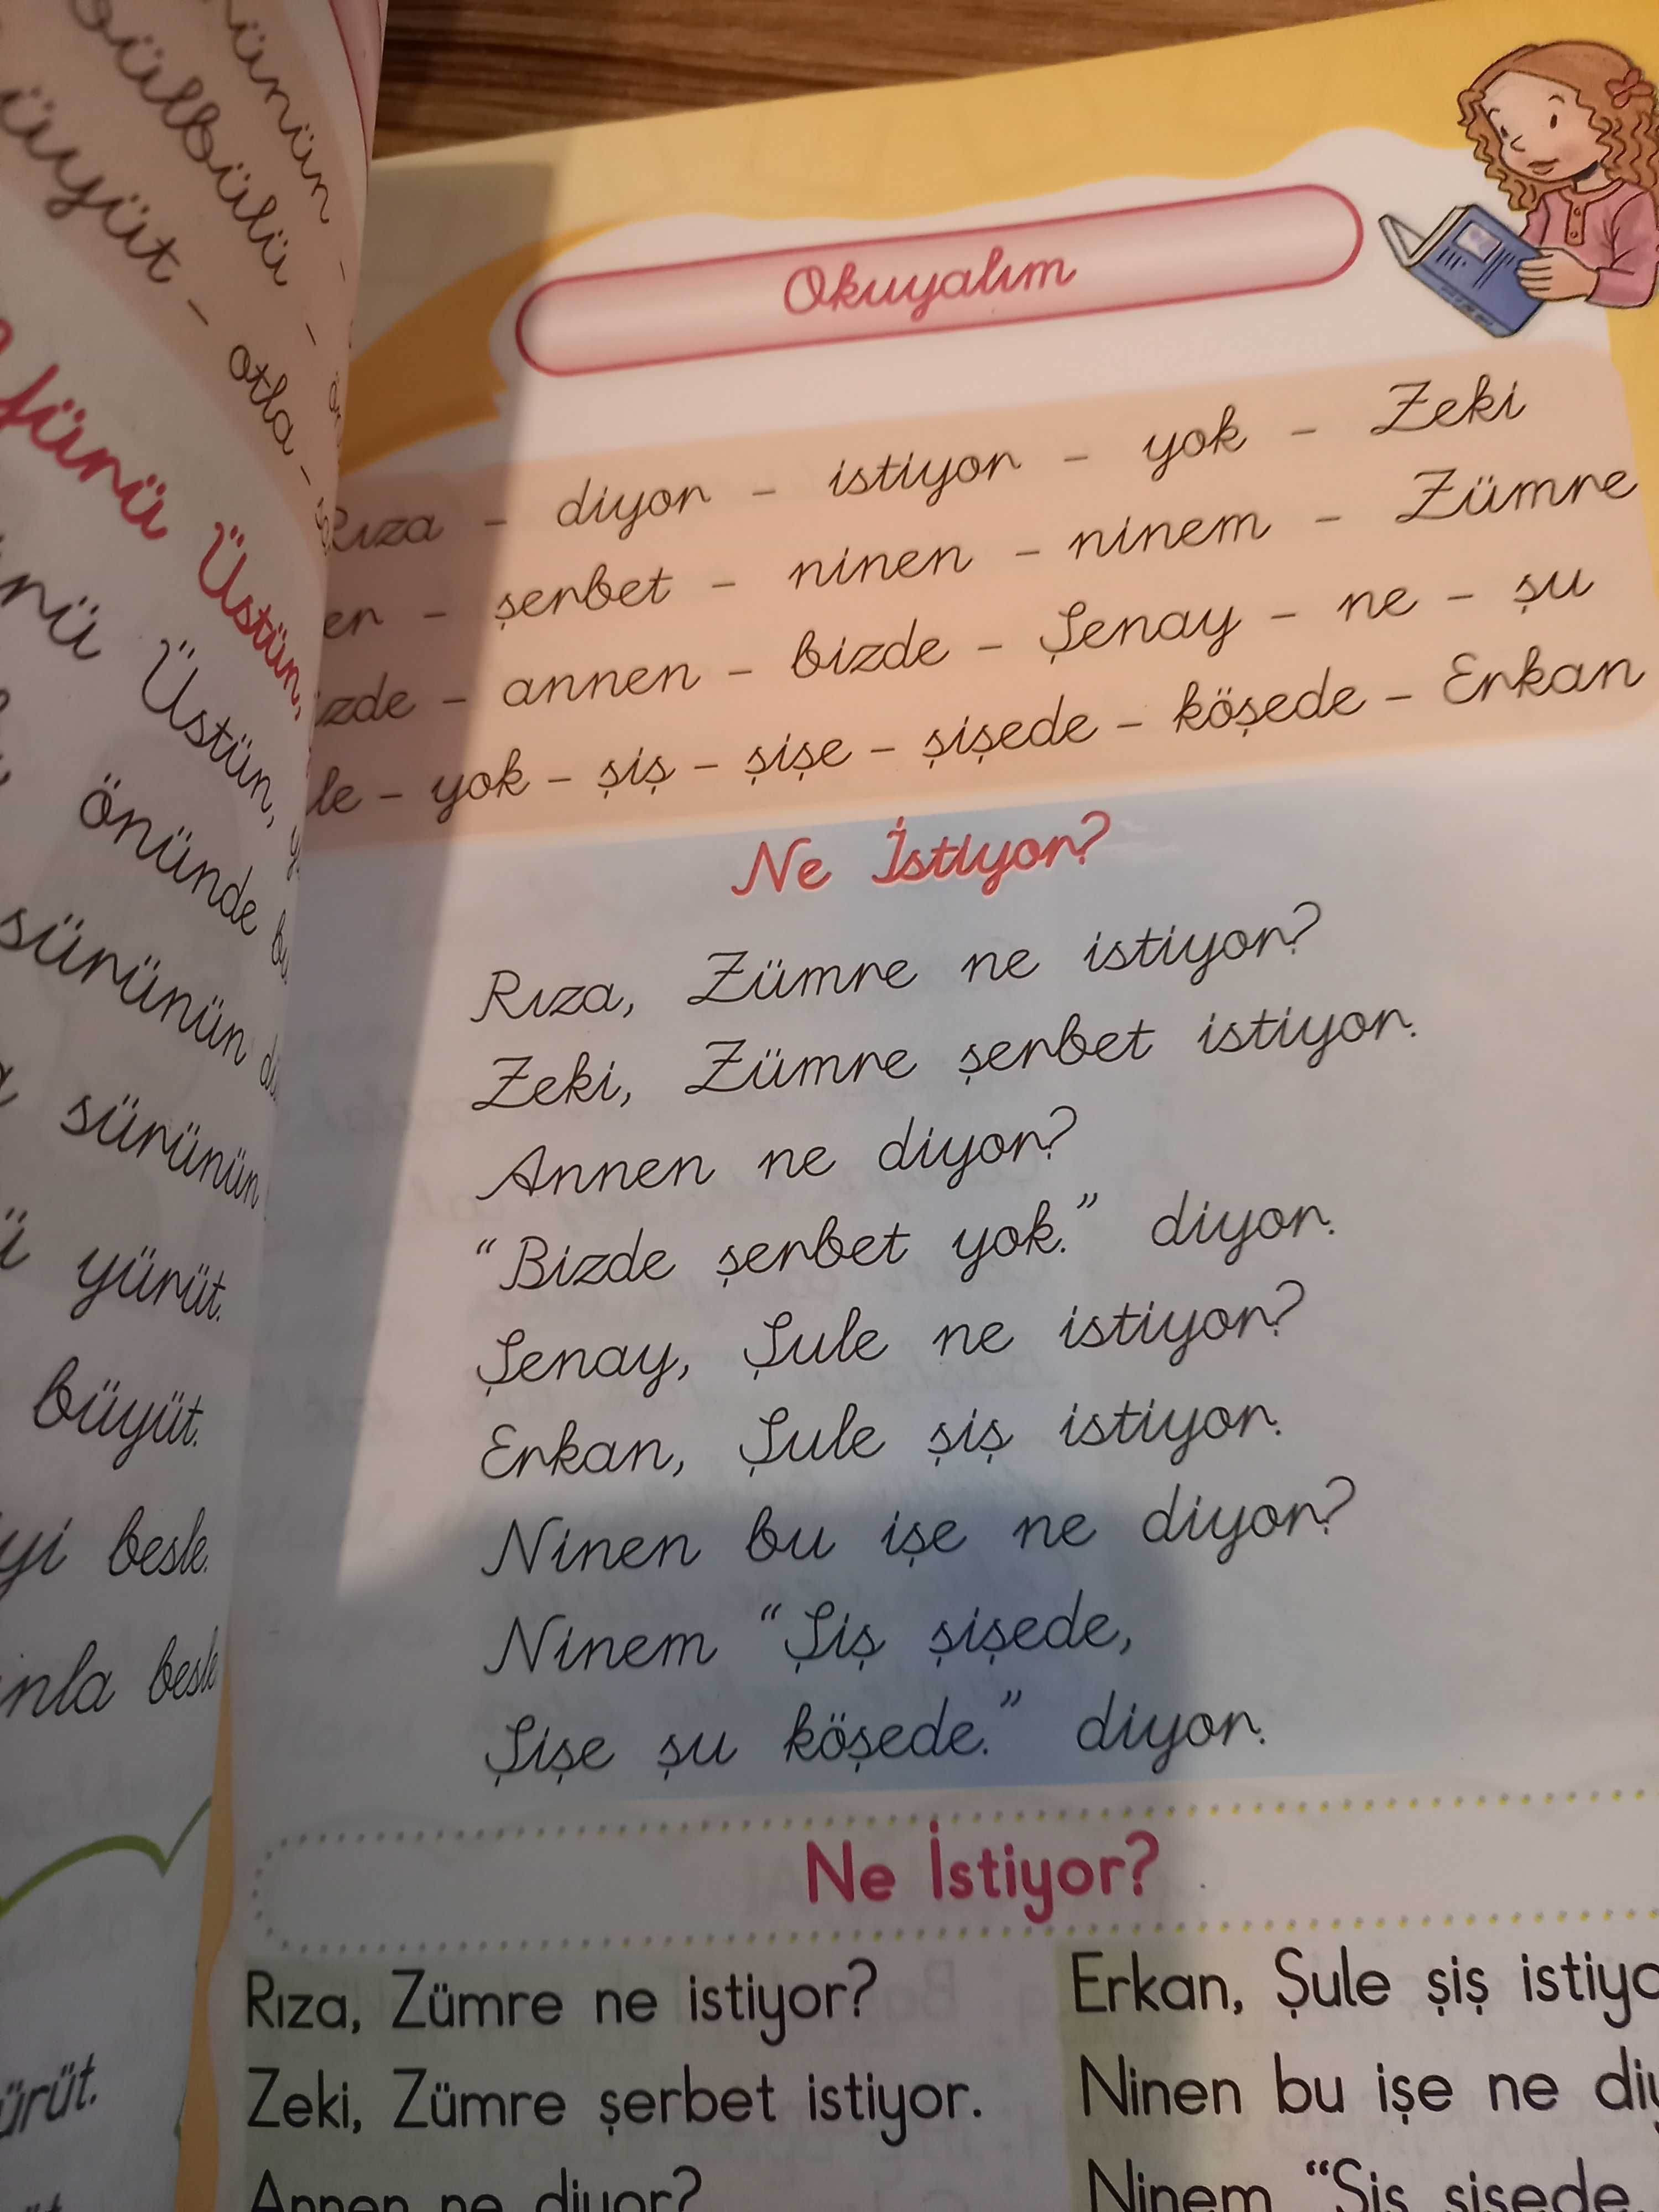 ünün -
bülbülü -
üyüt - otla -
fünü Üstün,
nü Üstün,
önünde
sürünün
sürünün
yürüt.
büyüt.
yi besle.
nla besle
ürüt.
Okuyalım
Rıza - diyor - istiyor - yok - Zeki
en - şerbet - ninen - ninem - Zümre
izde - annen - bizde - Şenay - ne - şu
le - yok - şiş - şişe - şişede - köşede - Erkan
Ne İstiyor?
Rıza, Zümre ne istiyor?
Zeki, Zümre şerbet istiyor.
Annen ne diyor?
“Bizde şerbet yok.” diyor.
Şenay, Şule ne istiyor?
Erkan, Şule şiş istiyor.
Ninen bu işe ne diyor?
Ninem “Şiş şişede,
Şişe şu köşede.” diyor.
Ne İstiyor?
Rıza, Zümre ne istiyor?
Zeki, Zümre şerbet istiyor.
Annen ne diyor?
Erkan, Şule şiş istiyo
Ninen bu işe ne diy
Ninem “Şiş şişede,